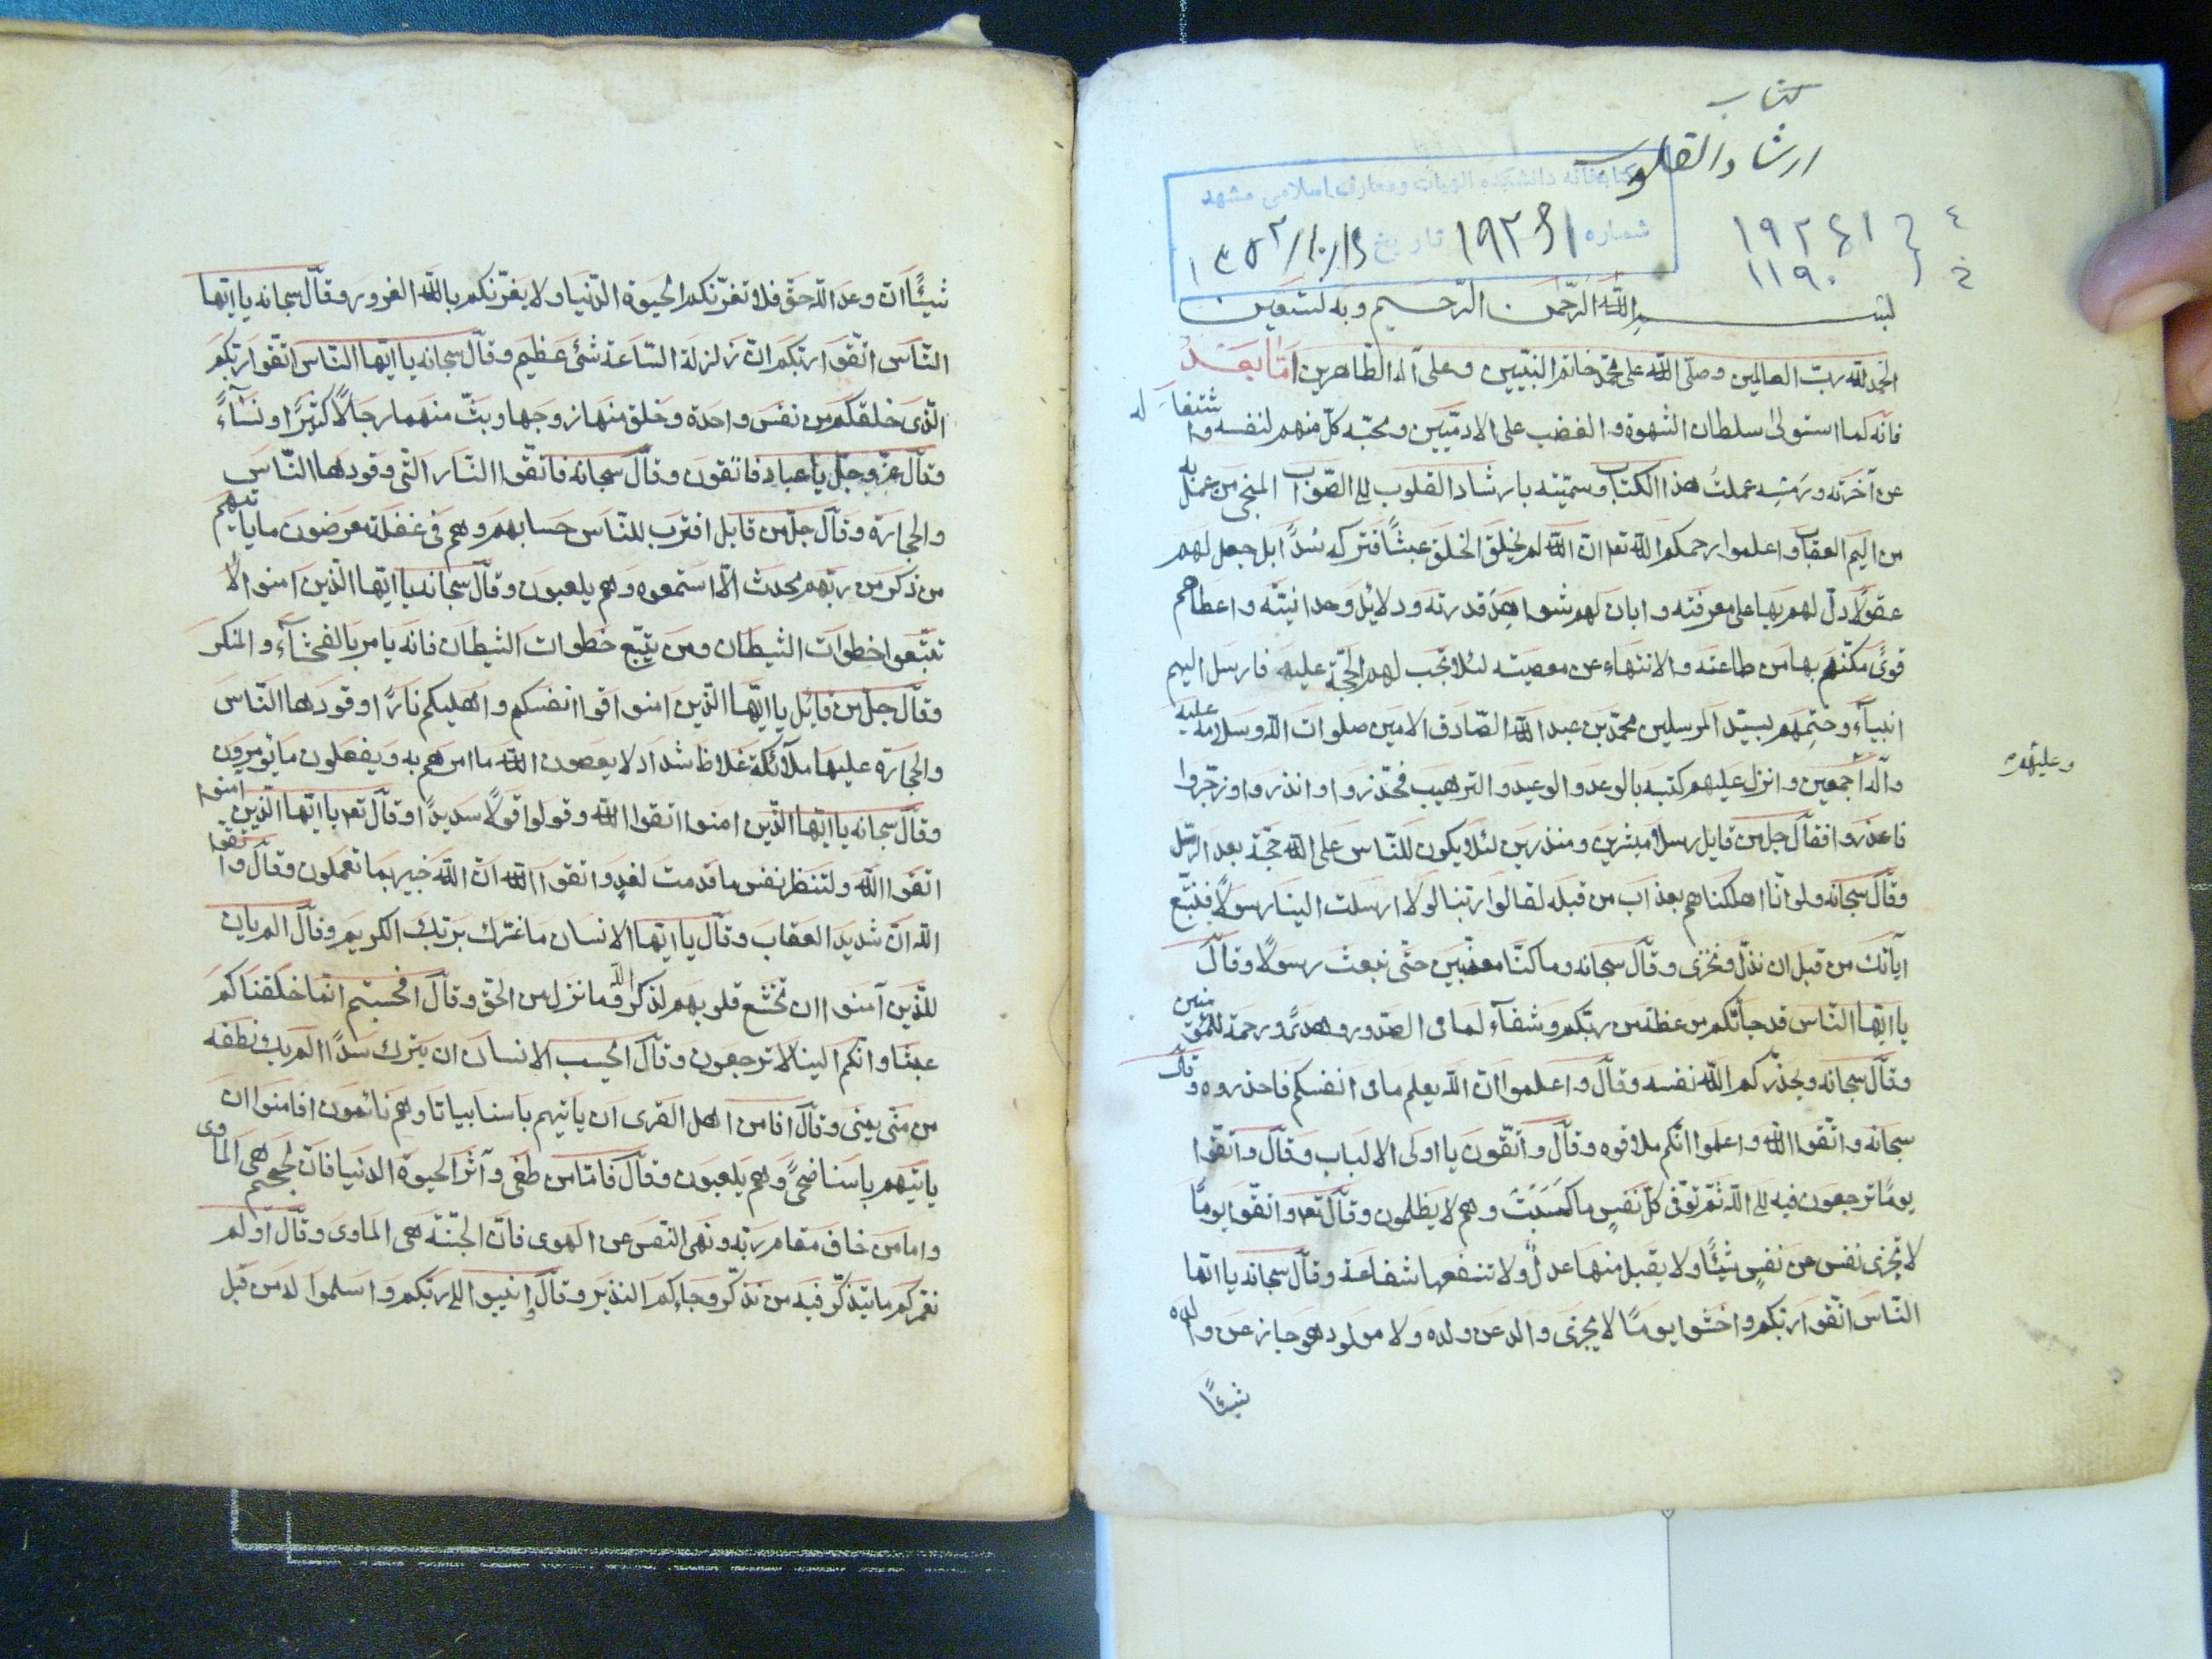 كتاب
ارشاد القلوب
كتابخانه دانشكده الهيات ومعارف اسلامى مشهد
شماره ۱۹۲۶۱ تاريخ
۱۹۲۶۱
۱۱۹۰
بسم الله الرّحمن الرّحيم وبه نستعين
الحمد لله ربّ العالمين وصلّى الله على محمّد خاتم النبيّين وعلى آله الطّاهرين امّا بعد
فانّه لما استولى سلطان الشهوة والغضب على الادميّين ومحبّه كلّ منهم لنفسه و
عن آخرته ورمسه عملتُ هذا الكتاب وسمّيته بارشاد القلوب الى الصّواب المنجى من عمل به
من اليم العقاب واعلموا رحمكم الله تعا انّ الله لم يخلق الخلق عبثًا فتركه سُدًا بل جعل لهم
عقولًا دلّ لهم بها على معرفته وابان لهم شواهد قدرته ودلائل وحدانيّته واعطاهم
قوىً مكّنهم بها من طاعته والانتهاء عن معصيته لئلا تجب لهم الحجّة عليه فارسل اليهم
انبيآء وختمهم بسيّد المرسلين محمّد بن عبد الله الصّادق الامين صلوات الله وسلامه عليه
وعليهم
وآله اجمعين وانزل عليهم كتبه بالوعد والوعيد والترهيب فحذّروا وانذروا وزجّروا
فاعذروا فقال جلّ من قايل رسلا مبشرين ومنذرين لئلا يكون للنّاس على الله حجّة بعد الرسّل
وقال سبحانه ولو انّا اهلكناهم بعذاب من قبله لقالوا ربّنا لولا ارسلت الينا رسولًا فنتبّع
آياتك من قبل ان نذلّ ونخزى وقال سبحانه وما كنّا معذّبين حتّى نبعث رسولًا وقال
يا ايّها النّاس قد جاءتكم موعظة من ربّكم وشفآء لما فى الصّدور وهدىً ورحمة للمؤمنين
وقال سبحانه ويحذّركم الله نفسه وقال واعلموا انّ الله يعلم ما فى انفسكم فاحذروه وقال
سبحانه واتّقوا الله واعلموا انّكم ملاقوه وقال واتّقون يا اولى الالباب وقال واتقّوا
يومًا ترجعون فيه الى الله ثمّ توّفى كلّ نفسٍ ما كسبت وهم لا يظلمون وقال تعا واتقّوا يومًا
لا تجزى نفس عن نفسٍ شيئًا ولا يقبل منها عدلٌ ولا تنفعها شفاعة وقال سبحانه يا ايّها
النّاس اتّقوا ربّكم واخشوا يومًا لا يجزى والد عن ولده ولا مولود هو جاز عن والده
شيئًا
شيئًا انّ وعد الله حقّ فلا تغرّنكم الحيوة الدّنيا ولا يغرّنكم بالله الغرور وقال سبحانه يا ايّها
النّاس اتّقوا ربّكم انّ زلزلة السّاعة شئ عظيم وقال سبحانه يا ايّها النّاس اتّقوا ربّكم
الّذى خلقكم من نفس واحدة وخلق منها زوجها وبثّ منهما رجالًا كثيرًا ونسآءً
وقال عزّ وجلّ يا عباد فاتّقون وقال سبحانه فاتّقوا النّار الّتى وقودها النّاس
والحجارة وقال جلّ من قايل اقترب للنّاس حسابهم وهم فى غفلة معرضون ما ياتيهم
من ذكر من ربّهم محدث الّا استمعوه وهم يلعبون وقال سبحانه يا ايّها الّذين امنوا لا
تتبّعوا خطوات الشيطان ومن يتبّع خطوات الشيطان فانه يامر بالفحشآء والمنكر
وقال جلّ من قايل يا ايّها الّذين امنوا قوا انفسكم واهليكم نارًا وقودها النّاس
والحجارة عليها ملآئكة غلاظ شداد لا يعصون الله ما امرهم به ويفعلون ما يؤمرون
وقال سبحانه يا ايّها الّذين امنوا اتقوا الله وقولوا قولًا سديدًا وقال تعا يا ايّها الّذين امنوا
اتقوا الله ولتنظر نفس ما قدمت لغدٍ واتقوا الله انّ الله خبير بما تعملون وقال واتقوا
الله انّ شديد العقاب وقال يا ايّها الانسان ما غرّك بربّك الكريم وقال الم يان
للّذين آمنوا ان تخشع قلوبهم لذكر الله وما نزل من الحقّ وقال افحسبتم انّما خلقناكم
عبثا وانّكم الينا لا ترجعون وقال ايحسب الانسان ان يترك سدًا الم يك نطفه
من منّى يمنى وقال افامن اهل القرى ان ياتيهم باسنا بياتا وهم نائمون افامنوا ان
ياتيهم باسنا ضحىً وهم يلعبون وقال فامّا من طغى وآثر الحيوة الدنيا فانّ الجحيم هى الماوى
واما من خاف مقام ربّه ونهى النّفس عن الهوى فانّ الجنّة هى الماوى وقال او لم
نعمّركم ما يتذكّر فيه من تذكّر وجاءكم النذير وقال وانيبوا الى ربّكم واسلموا له من قبل